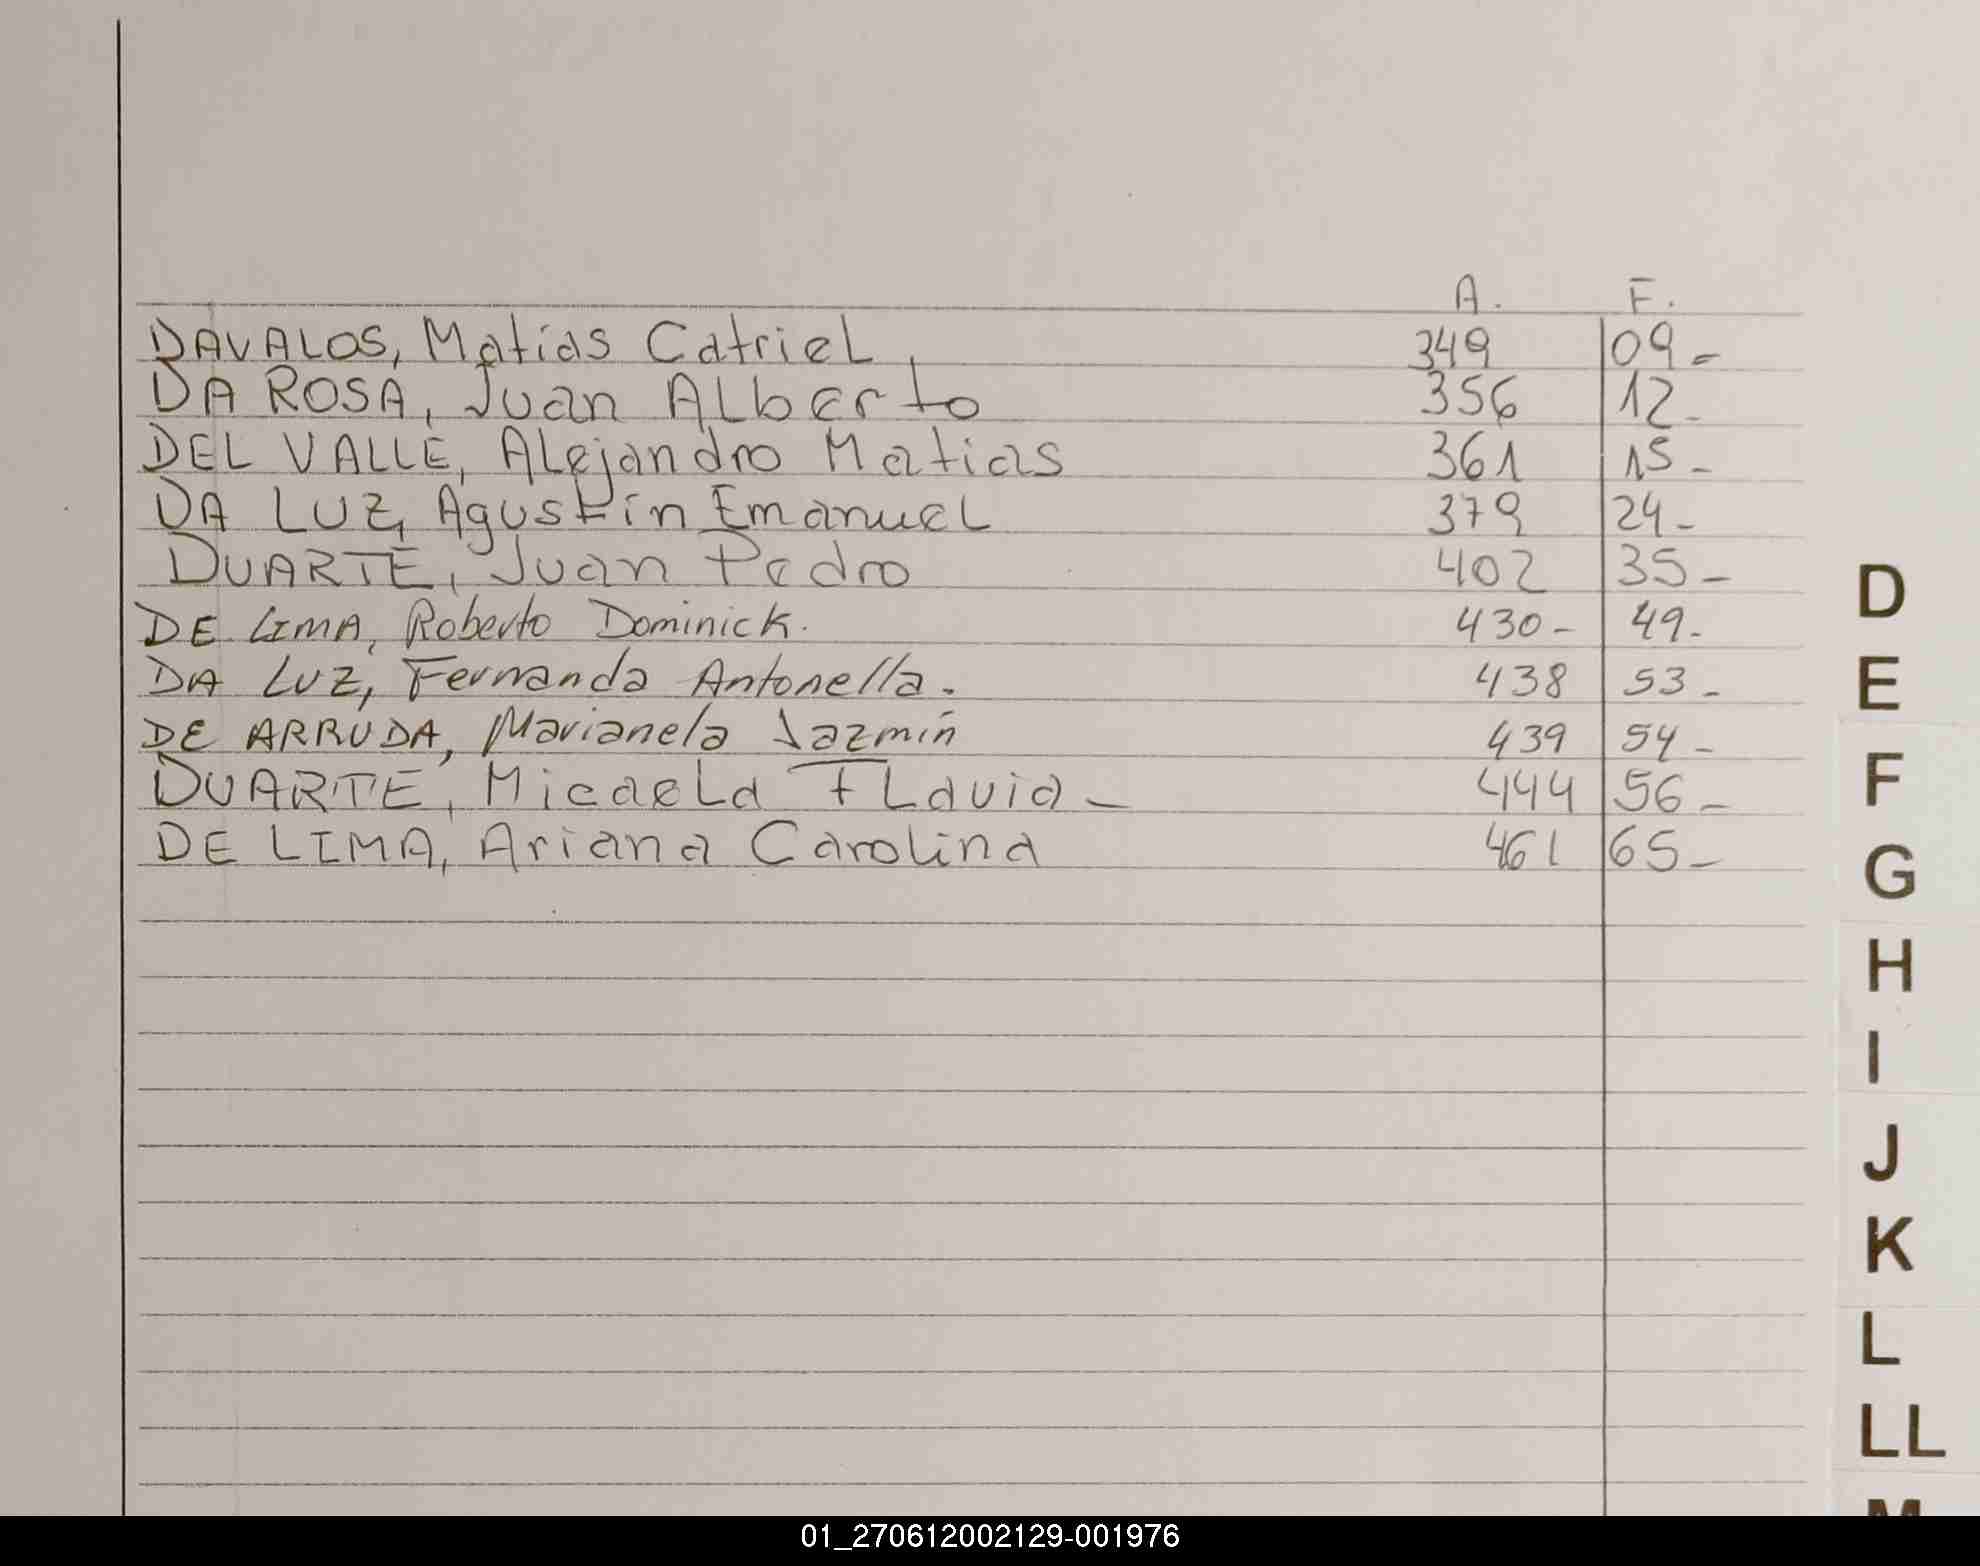 A. F.
DAVALOS, Matías Catriel. 349 09-
DA ROSA, Juan Alberto 356 12-
DEL VALLE, Alejandro Matias 361 15-
DA LUZ, Agustín Emanuel 379 24-
DUARTE, Juan Pedro 402 35-
DE LIMA, Roberto Dominick. 430- 49-
DA LUZ, Fernanda Antonella. 438 53-
DE ARRUDA, Marianela Jazmín 439 54-
DUARTE, Micaela FLavia- 444 56-
DE LIMA, Ariana Carolina 461 65-
D
E
F
G
H
I
J
K
L
LL
M
01_270612002129-001976